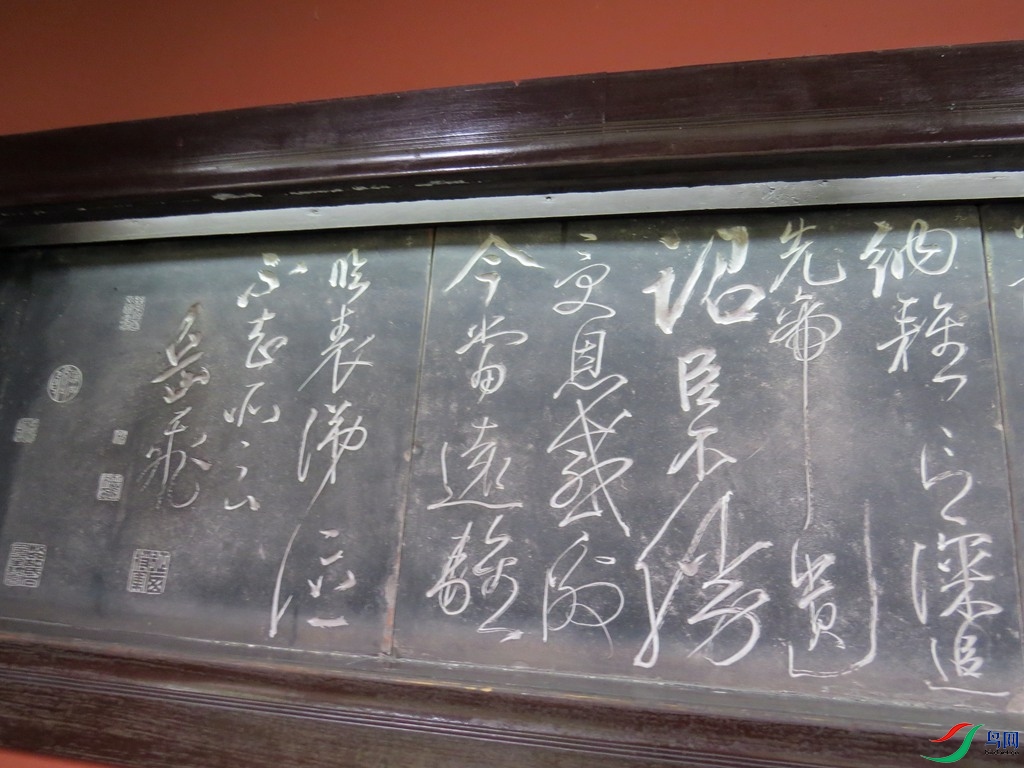 納雅言深追
先帝遺
詔臣不勝
受恩感激
今當遠離
臨表涕泣
不知所云
岳飛
鸟网